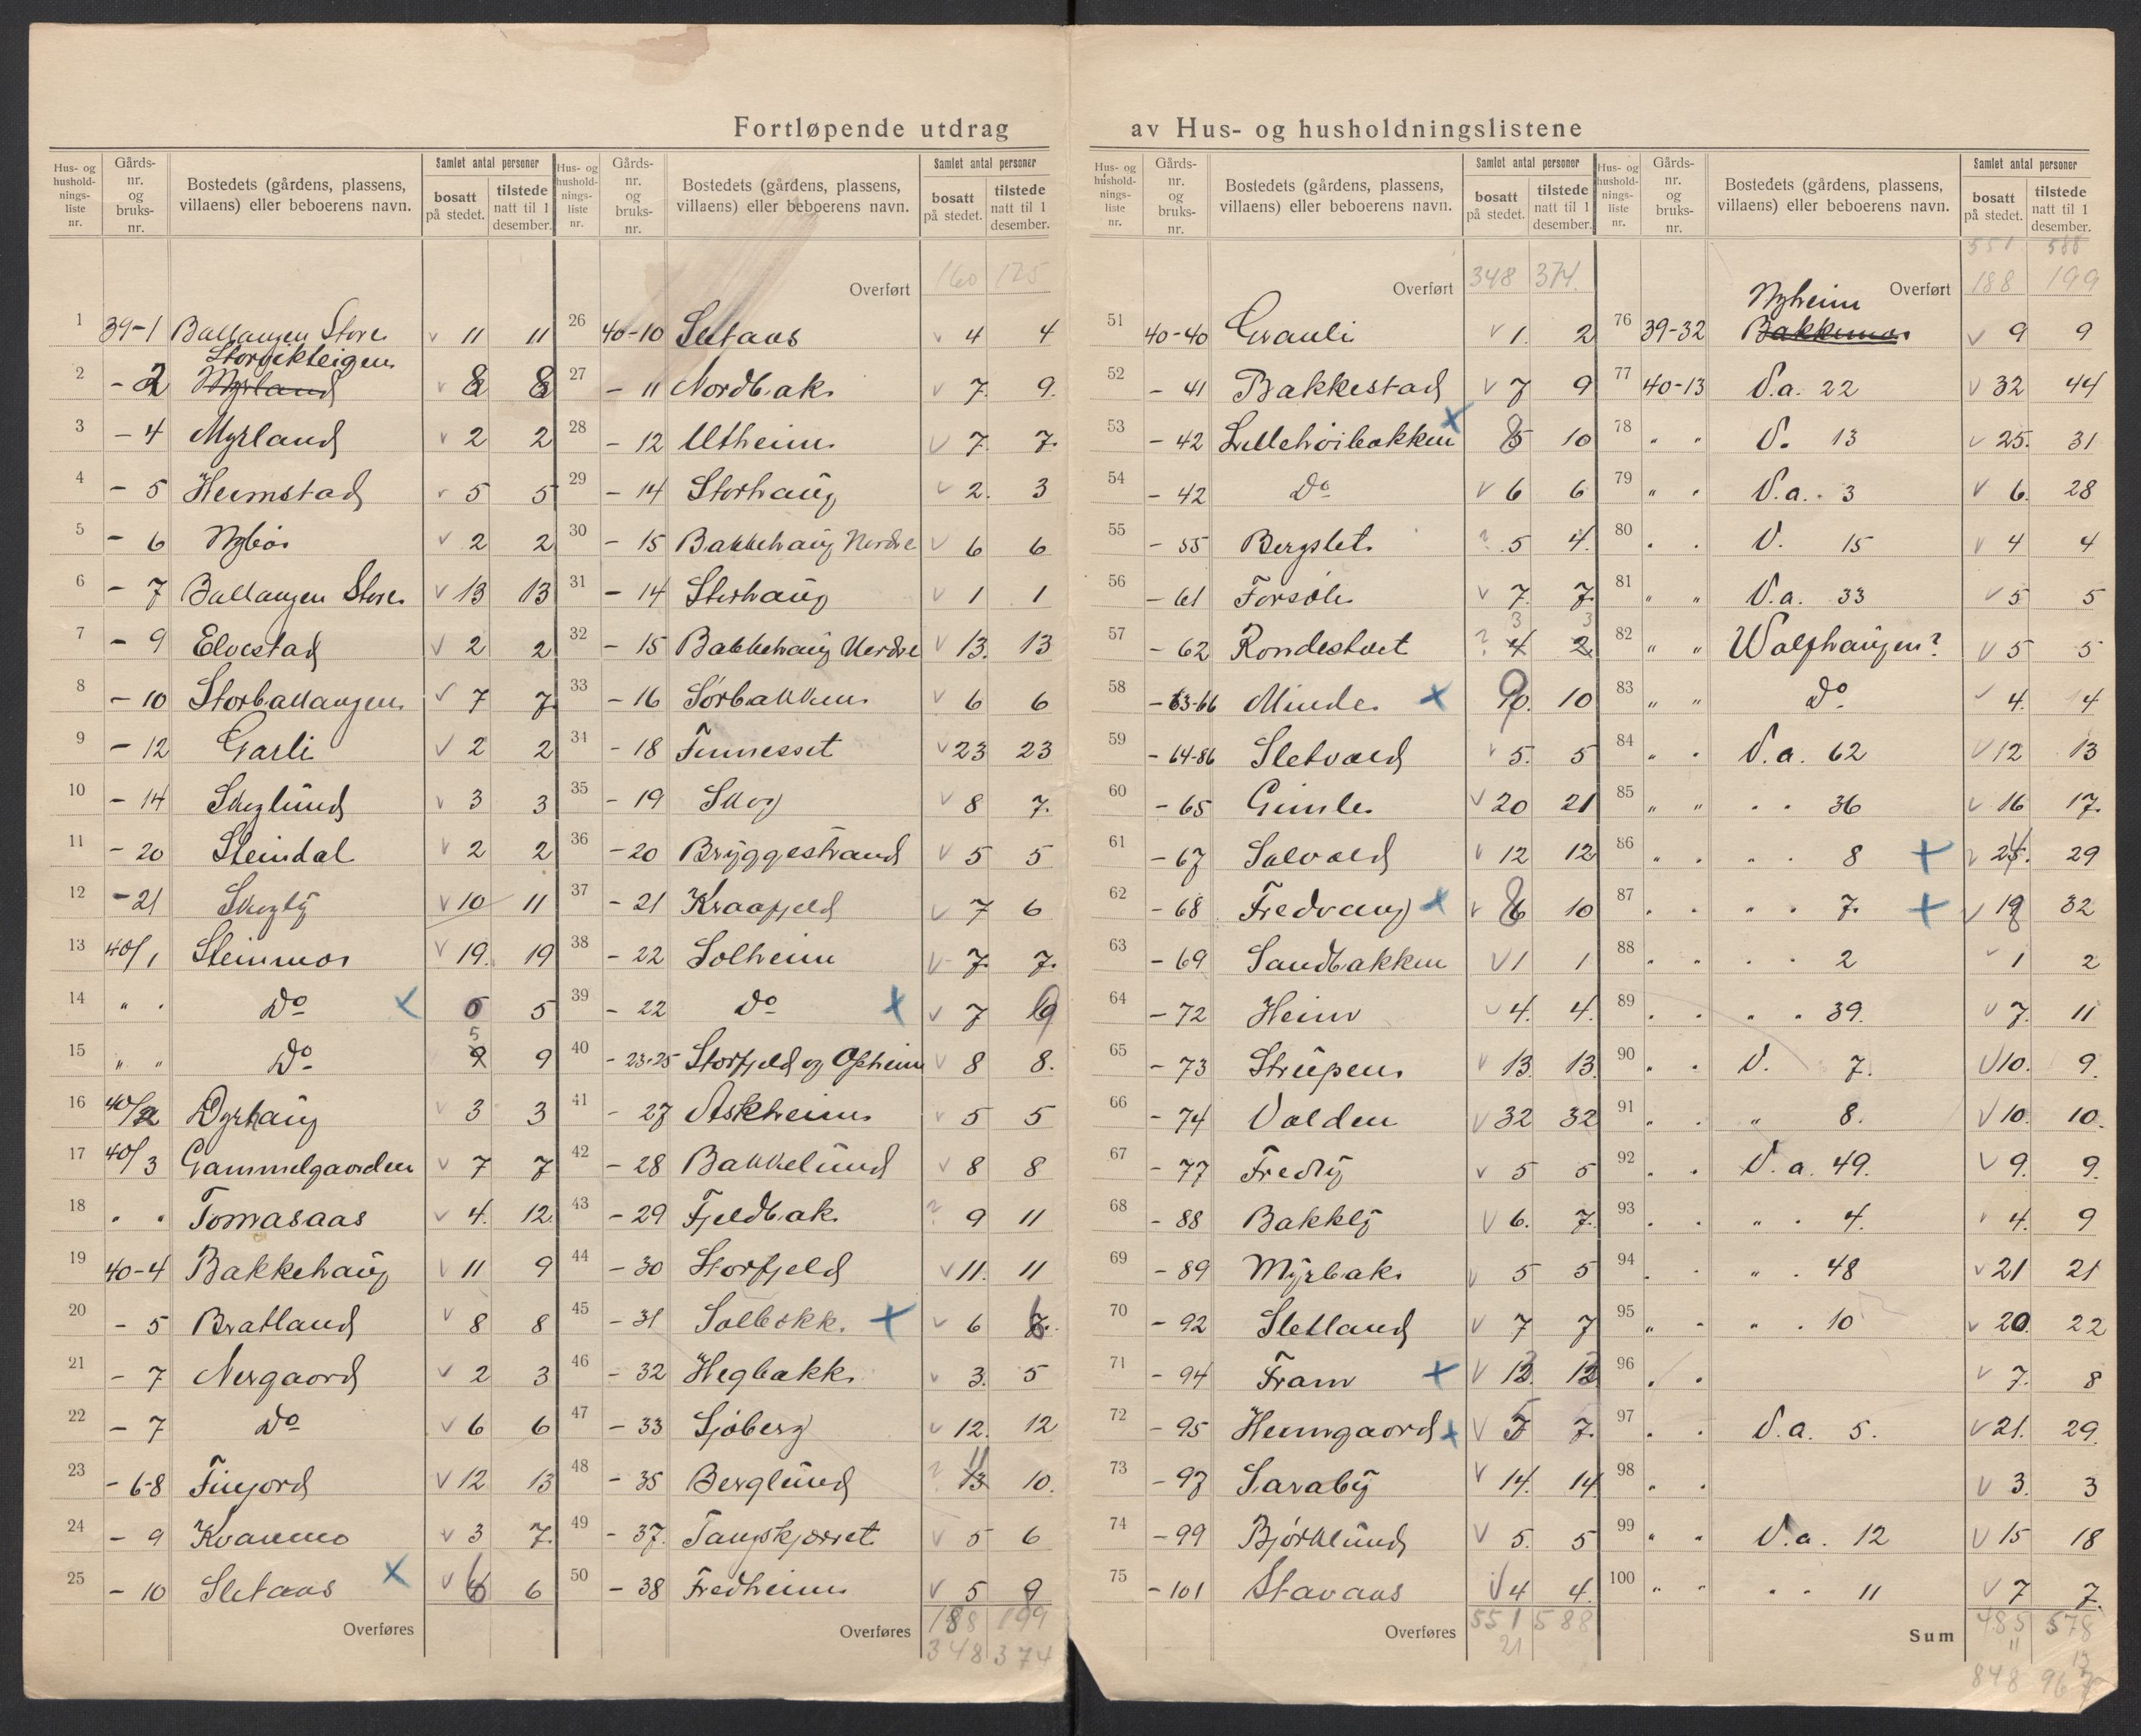 Fortløpende utdrag av Hus- og husholdningslistene
Hus- og husholdnings-liste nr. Gårds-nr. og bruks-nr. Bostedets (gårdens, plassens, villaens) eller beboerens navn. Samlet antal personer bosatt på stedet. tilstede natt til 1 desember.
1 39-1 Ballangen Store v 11 11
Storvikteigen
2 - 2 Myrland v 8 8
3 - 4 Myrland v 2 2
4 - 5 Heimstad v 5 5
5 - 6 Nybö v 2 2
6 - 7 Ballangen Store v 13 13
7 - 9 Elvestad v 2 2
8 - 10 Storballangen v 7 7
9 - 12 Garli v 2 2
10 - 14 Skoglund v 3 3
11 - 20 Steindal v 2 2
12 - 21 Skogly v 10 11
13 40/1 Steinmo v 19. 19
14 " " Do x 5
5
15 " " Do 9 9
16 40/2 Dyrhaug v 3 3
17 40/3 Gammelgaarden v 7 7
18 " " Tomasaas v 4. 12
19 40-4 Bakkehaug v 11 9
20 - 5 Bratland v 8 8
21 - 7 Nergaard v 2 3
22 - 7 Do v 6 6
23 - 6-8 Finjord v 12 13
24 - 9 Kvanmo v 3 7.
25 - 10 Sletaas x v 6 6
Overføres
Hus- og husholdnings-liste nr. Gårds-nr. og bruks-nr. Bostedets (gårdens, plassens, villaens) eller beboerens navn. Samlet antal personer bosatt på stedet. tilstede natt til 1 desember.
Overført 160 175
26 40-10 Sletaas v 4 4
27 - 11 Nordbak v 7. 9.
28 - 12 Utheim v 7. 7.
29 - 14 Storhaug v 2. 3
30 - 15 Bakkehaug Nerdre v 6 6
31 - 14 Storhaug v 1 1
32 - 15 Bakkehaug Nerdre v 13. 13
33 - 16 Sørbakken v 6 6
34 - 18 Finneset v 23 23
35 - 19 Skog v 8 7.
36 - 20 Bryggestrand v 5 5
37 - 21 Kraafjeld v 7 6
38 - 22 Solheim v 7. 7.
39 - 22 Do x v 7 9
40 - 23-25 Storfjeld og Opheim v 8 8.
41 - 27 Askheim v 5 5
42 - 28 Bakkelund v 8 8
43 - 29 Fjeldbak ? 9 11
44 - 30 Storfjeld v 11. 11
45 - 31 Solbakk x v 6
46 - 32 Hegbakk v 3. 5
47 - 33 Sjøberg v 12. 12
11
48 - 35 Berglund ? 13 10.
49 - 37. Tangskjæret v 5 6
50 - 38 Fredheim v 5 9
Overføres 188 199
348 374
Hus- og husholdnings-liste nr. Gårds-nr. og bruks-nr. Bostedets (gårdens, plassens, villaens) eller beboerens navn. Samlet antal personer bosatt på stedet. tilstede natt til 1 desember.
Overført 348 374.
51 40-40 Granli v 1. 2
52 - 41 Bakkestad v 7 9
53 - 42 Lillehøibakken x 8 10
54 - 42 Do v 6 6
55 - 55 Bergslet ? 5 4.
56 - 61 Forsøk v 7. 7.
3 3
57 - 62 ? 4 2
58 - 63-66 Minde x 9 10
59 - 64-86 Sletvold v 5. 5
60 - 65 Gimle v 20 21
61 - 67 Solvold v 12 12
62 - 68 Fredvang x v 8 10
63 - 69 Sandbakken v 1 1
64 - 72 Heim v 4. 4.
65 - 73 Strupen v 13. 13.
66 - 74 Valden v 32 32
67 - 77 Fredly v 5 5
68 - 88 Bakkly v 6. 7.
69 - 89 Myrbak v 5 5
70 - 92 Sletland v 7 7
71 - 94 Fram x v 12. 12
72 - 95 Heimgaard x v 5 7.
73 - 97 Saraby v 14. 14
74 - 99 Bjørklund v 5. 5
75 - 101 Stavaas v 4 4.
Overføres 551 588
21
Hus- og husholdnings-liste nr. Gårds-nr. og bruks-nr. Bostedets (gårdens, plassens, villaens) eller beboerens navn. Samlet antal personer bosatt på stedet. tilstede natt til 1 desember.
551 588
Overført 188 199
Nyheim
76 39-32 Bakkemo v 9 9
77 40-13 V.a. 22 v 32 44
78 " " V. 13 v 25. 31
79 " " V.a. 3 v 6. 28
80 " " V. 15 v 4 4
81 " " V.a. 33 v 5 5
82 " " Walfhaugen? v 5 5
83 " " Do v 4. 4
84 " " V.a. 62 v 12 13
85 " " " " 36 v 16 17.
86 " " " " 8 x v 29
87 " " " " 7. x v 32
88 " " " " 2 v 1 2
89 " " " " 39. v 7. 11
90 " " V. 7. v 10. 9.
91 " " " 8. v 10. 10.
92 " " V.a. 49. v 9. 9.
93 " " " " 4. v 4. 9
94 " " " " 48 v 21 21
95 " " " " 10 v 20 22
96 " " v 7. 8
97 " " V.a. 5. v 21. 29.
98 " " v 3. 3
99 " " V.a. 12 v 15 18
100 " " " " 11 v 7 7.
Sum 485 578
11 12
848 967